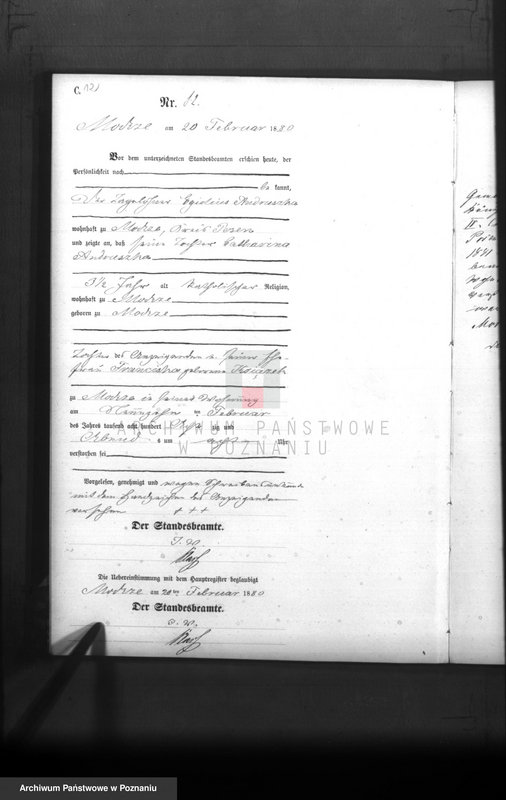 C. 12)
Nr. 12.
Modrze am 20 Februar 1880
Vor dem unterzeichneten Standesbeamten erschien heute, der
Persönlichkeit nach
be kannt,
Der Tagelöhner Egidius Andruszka
wohnhaft zu Modrze, Kreis Posen
und zeigte an, daß seine Tochter Catharina
Andruszka
3½ Jahr alt katholischer Religion,
wohnhaft zu Modrze
geboren zu Modrze
Tochter des Anzeigenden u. seiner Ehe-
frau Franciszka geborene Książek
zu Modrze in seiner Wohnung
am Neunzehn ten Februar
des Jahres tausend acht hundert Acht zig und
Abend s um acht Uhr
verstorben sei
Vorgelesen, genehmigt und wegen Schreibensunkunde
mit dem Handzeichen des Anzeigenden
versehen +++
Der Standesbeamte.
Die Uebereinstimmung mit dem Hauptregister beglaubigt
Modrze am 20ten Februar 1880
Der Standesbeamte.
ARCHIWUM PAŃSTWOWE
W POZNANIU
Archiwum Państwowe w Poznaniu